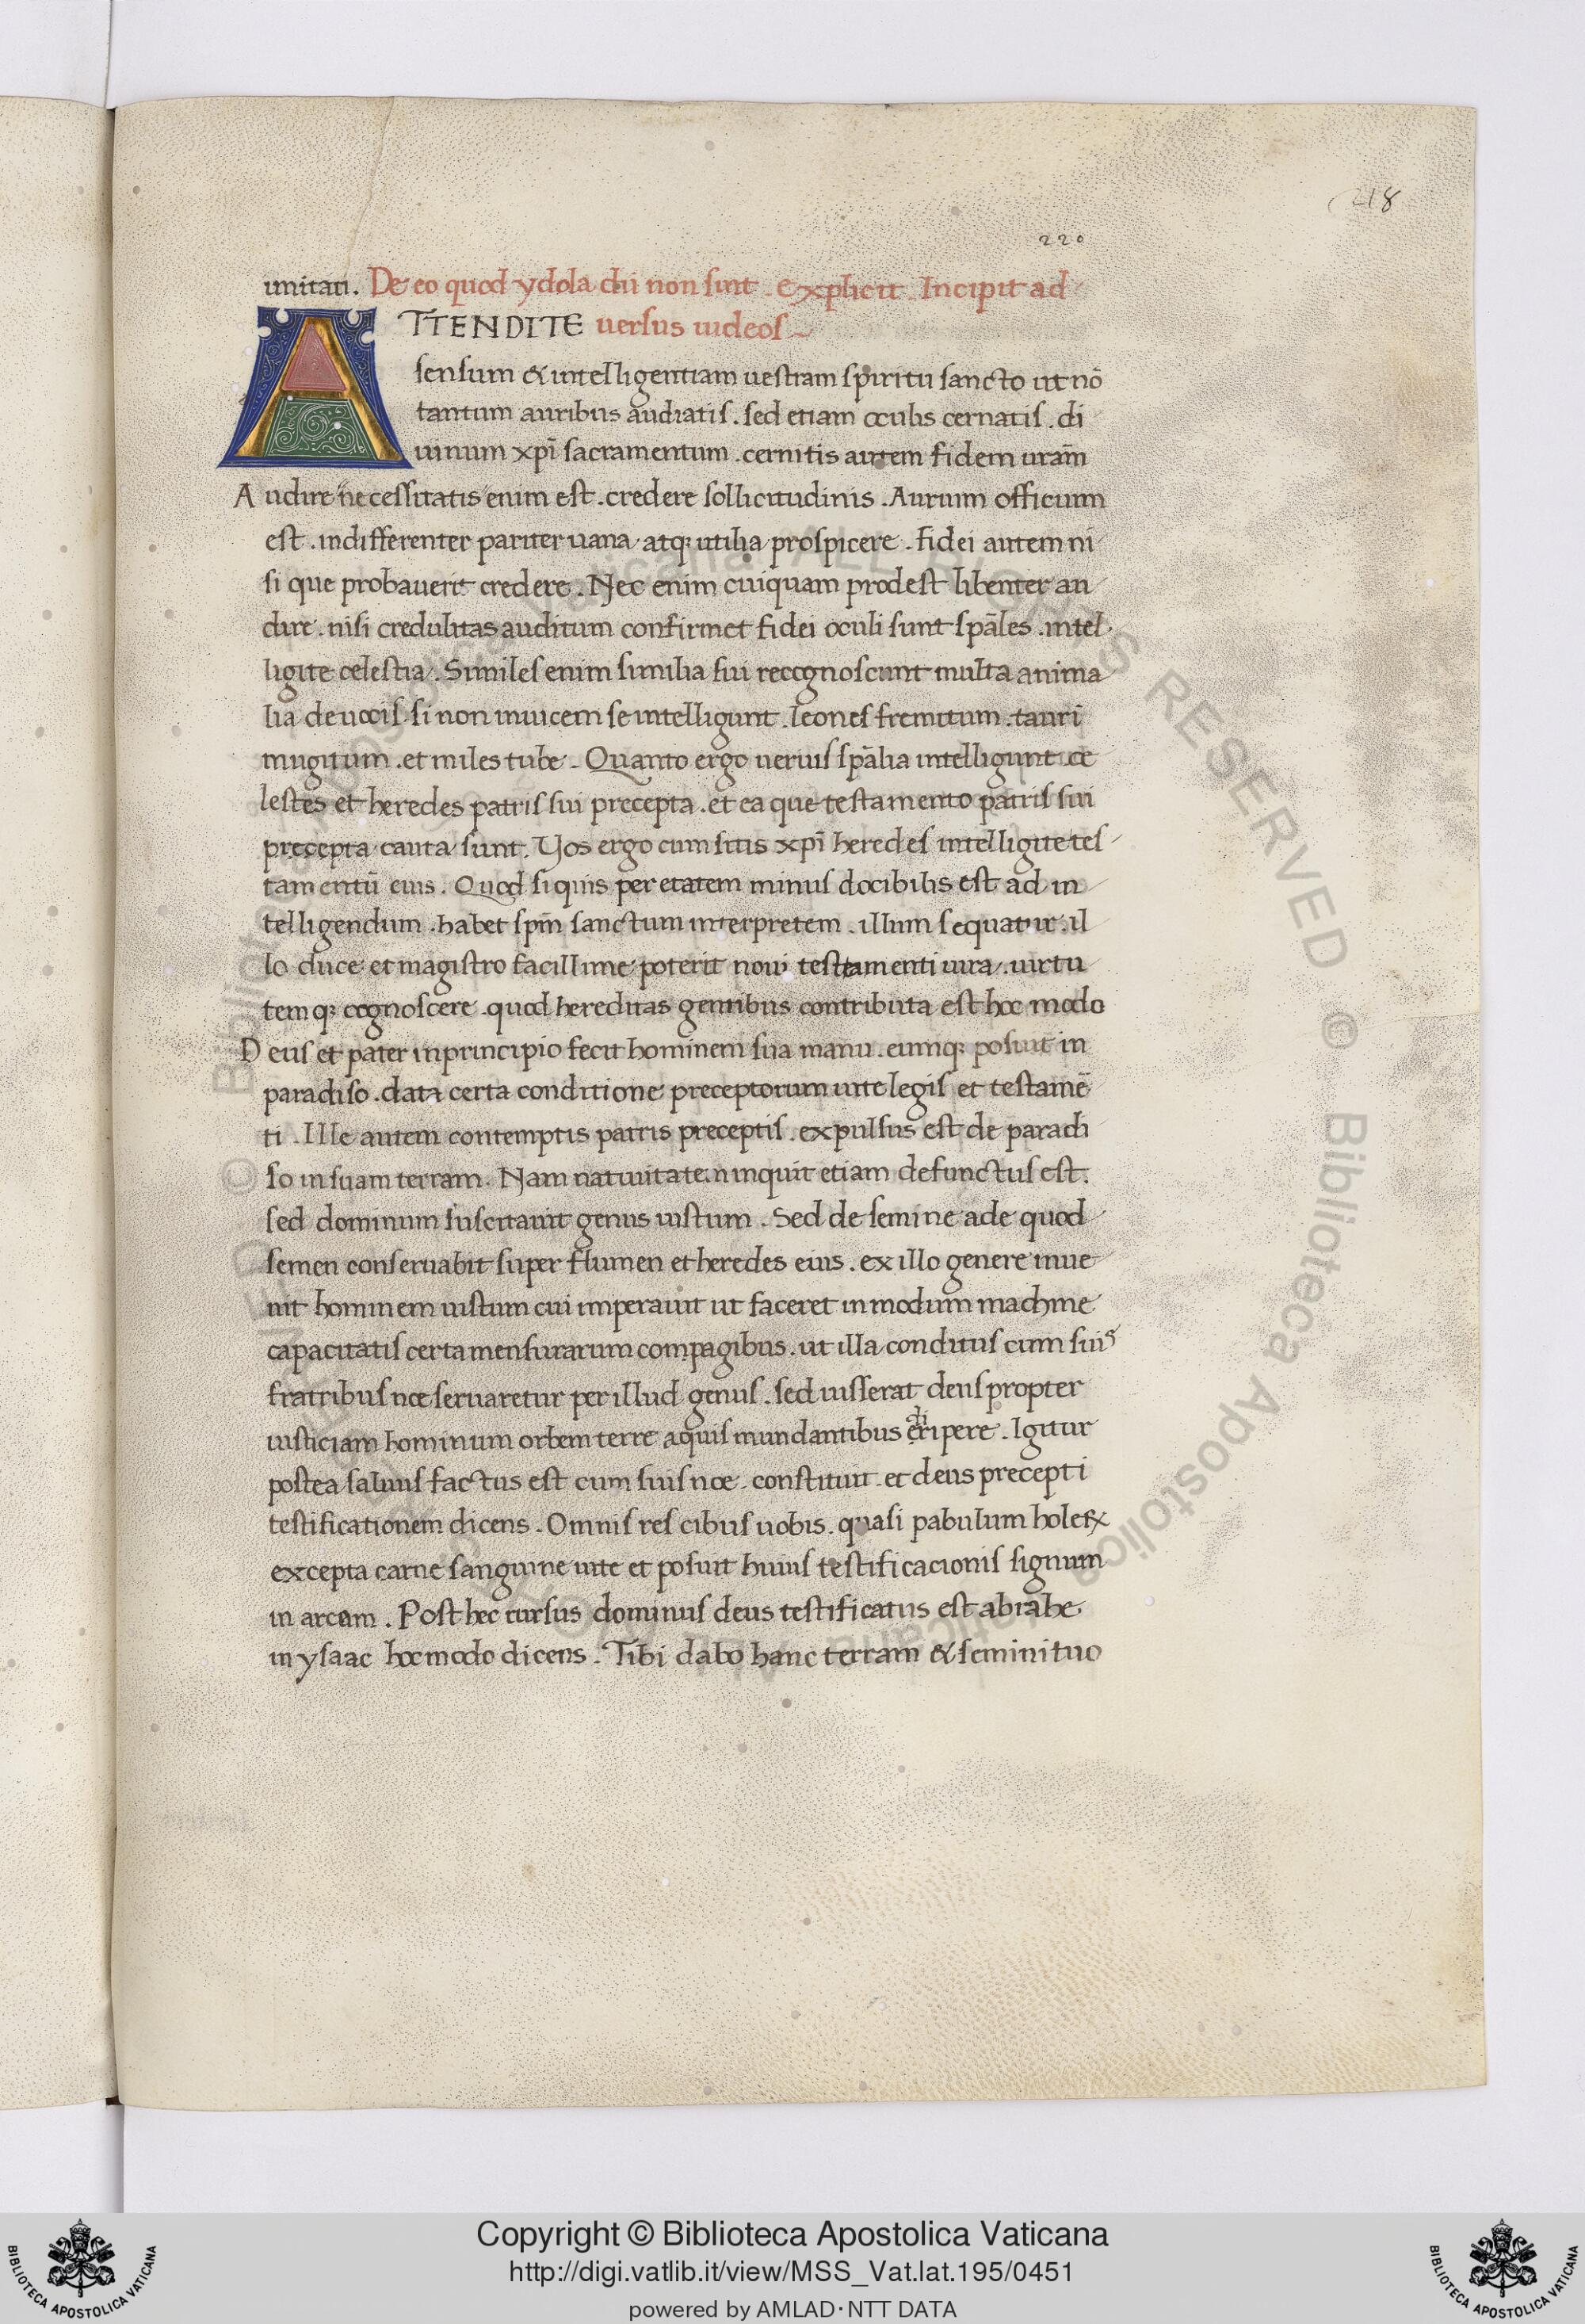 218
220
unitati. De eo quod ydola dii non sint. explicit. Incipit ad
ATTENDITE uersus iudeos
sensum & intelligentiam uestram spiritu sancto ut nō
tantum auribus audiatis. sed etiam oculis cernatis. di
uinum xp̄i sacramentum. cernitis autem fidem urām
Audire necessitatis enim est. credere sollicitudinis. Aurium officium
est. indifferenter pariter uana atq; utilia prospicere. fidei autem ni
si que probauerit credere. Nec enim cuiquam prodest libenter au
dire. nisi credulitas auditum confirmet fidei oculi sunt sp̄ales. intel
ligite celestia. Similes enim similia sui recognoscunt multa anima
lia de uocis si non inuicem se intelligunt. leones fremitum. tauri
mugitum. et miles tube. Quanto ergo uerius sp̄alia intelligunt ce
lestes et heredes patris sui precepta. et ea que testamento patris sui
precepta cauta sunt. Vos ergo cum sitis xp̄i heredes intelligite tes
tamentū eius. Quod si quis per etatem minus docibilis est ad in
telligendum. habet sp̄m sanctum interpretem. illum sequatur. il
lo duce et magistro facillime poterit noui testamenti iura. uirtu
temq; cognoscere. quod hereditas gentibus contributa est hoc modo
Deus et pater inprincipio fecit hominem sua manu. eumq; posuit in
paradiso. data certa conditione preceptorum uite legis et testamē
ti. Ille autem contemptis patris preceptis. expulsus est de paradi
so in suam terram. Nam natiuitate n inquit etiam defunctus est.
sed dominum suscitauit genus iustum. Sed de semine ade quod
semen conseruabit super flumen et heredes eius. ex illo genere inue
nit hominem iustum cui imperauit ut faceret in modum machine
capacitatis certa mensurarum compagibus. ut illa conditus cum suis
fratribus noe seruaretur per illud genus. sed iusserat deus propter
iusticiam hominum orbem terre aquis mundantibus eripere. Igitur
postea saluus factus est cum suis noe. constituit. et deus precepti
testificationem dicens. Omnis res cibus uobis. quasi pabulum holeꝝ
excepta carne sanguine uite et posuit huius testificacionis signum
in arcam. Post hec rursus dominus deus testificatus est abrahe.
in ysaac hoc modo dicens. Tibi dabo hanc terram & semini tuo
Copyright © Biblioteca Apostolica Vaticana
http://digi.vatlib.it/view/MSS_Vat.lat.195/0451
powered by AMLAD·NTT DATA
BIBLIOTECA APOSTOLICA VATICANA
BIBLIOTECA APOSTOLICA VATICANA